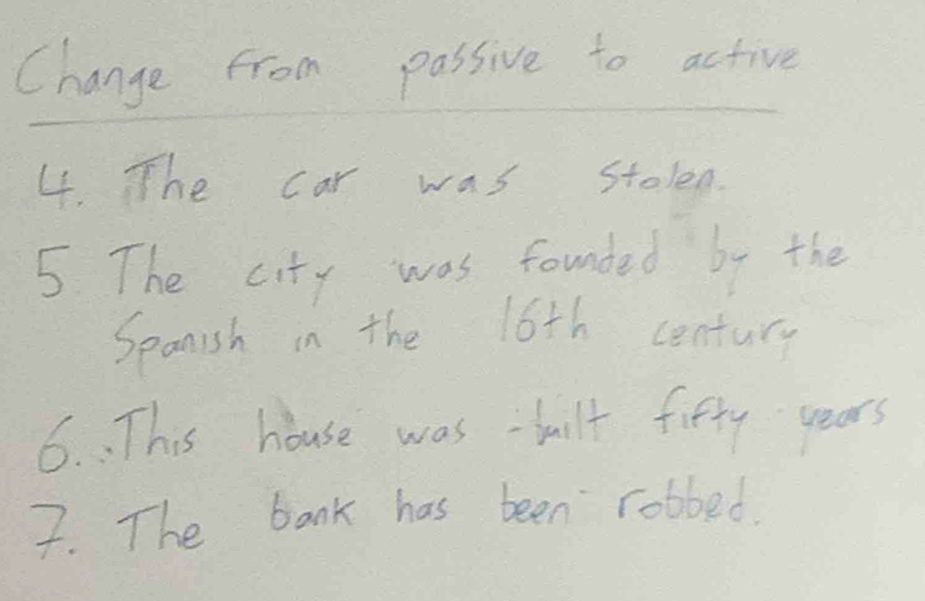 Change from passive to active
4. The car was stolen.
5 The city was founded by the
Spanish in the 16th century
6. This house was built fifty years
7. The bank has been robbed.